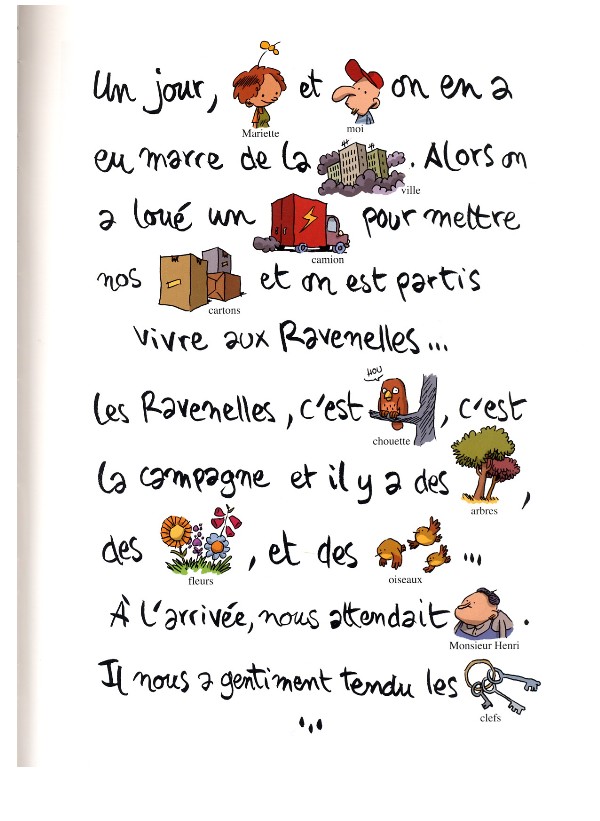 Un jour, Mariette et moi on en a
eu marre de la ville. Alors on
a loué un camion pour mettre
nos cartons et on est partis
vivre aux Ravenelles...
Les Ravenelles, c'est HOU chouette, c'est
la campagne et il y a des arbres,
des fleurs, et des oiseaux...
À l'arrivée, nous attendait Monsieur Henri.
Il nous a gentiment tendu les clefs
...